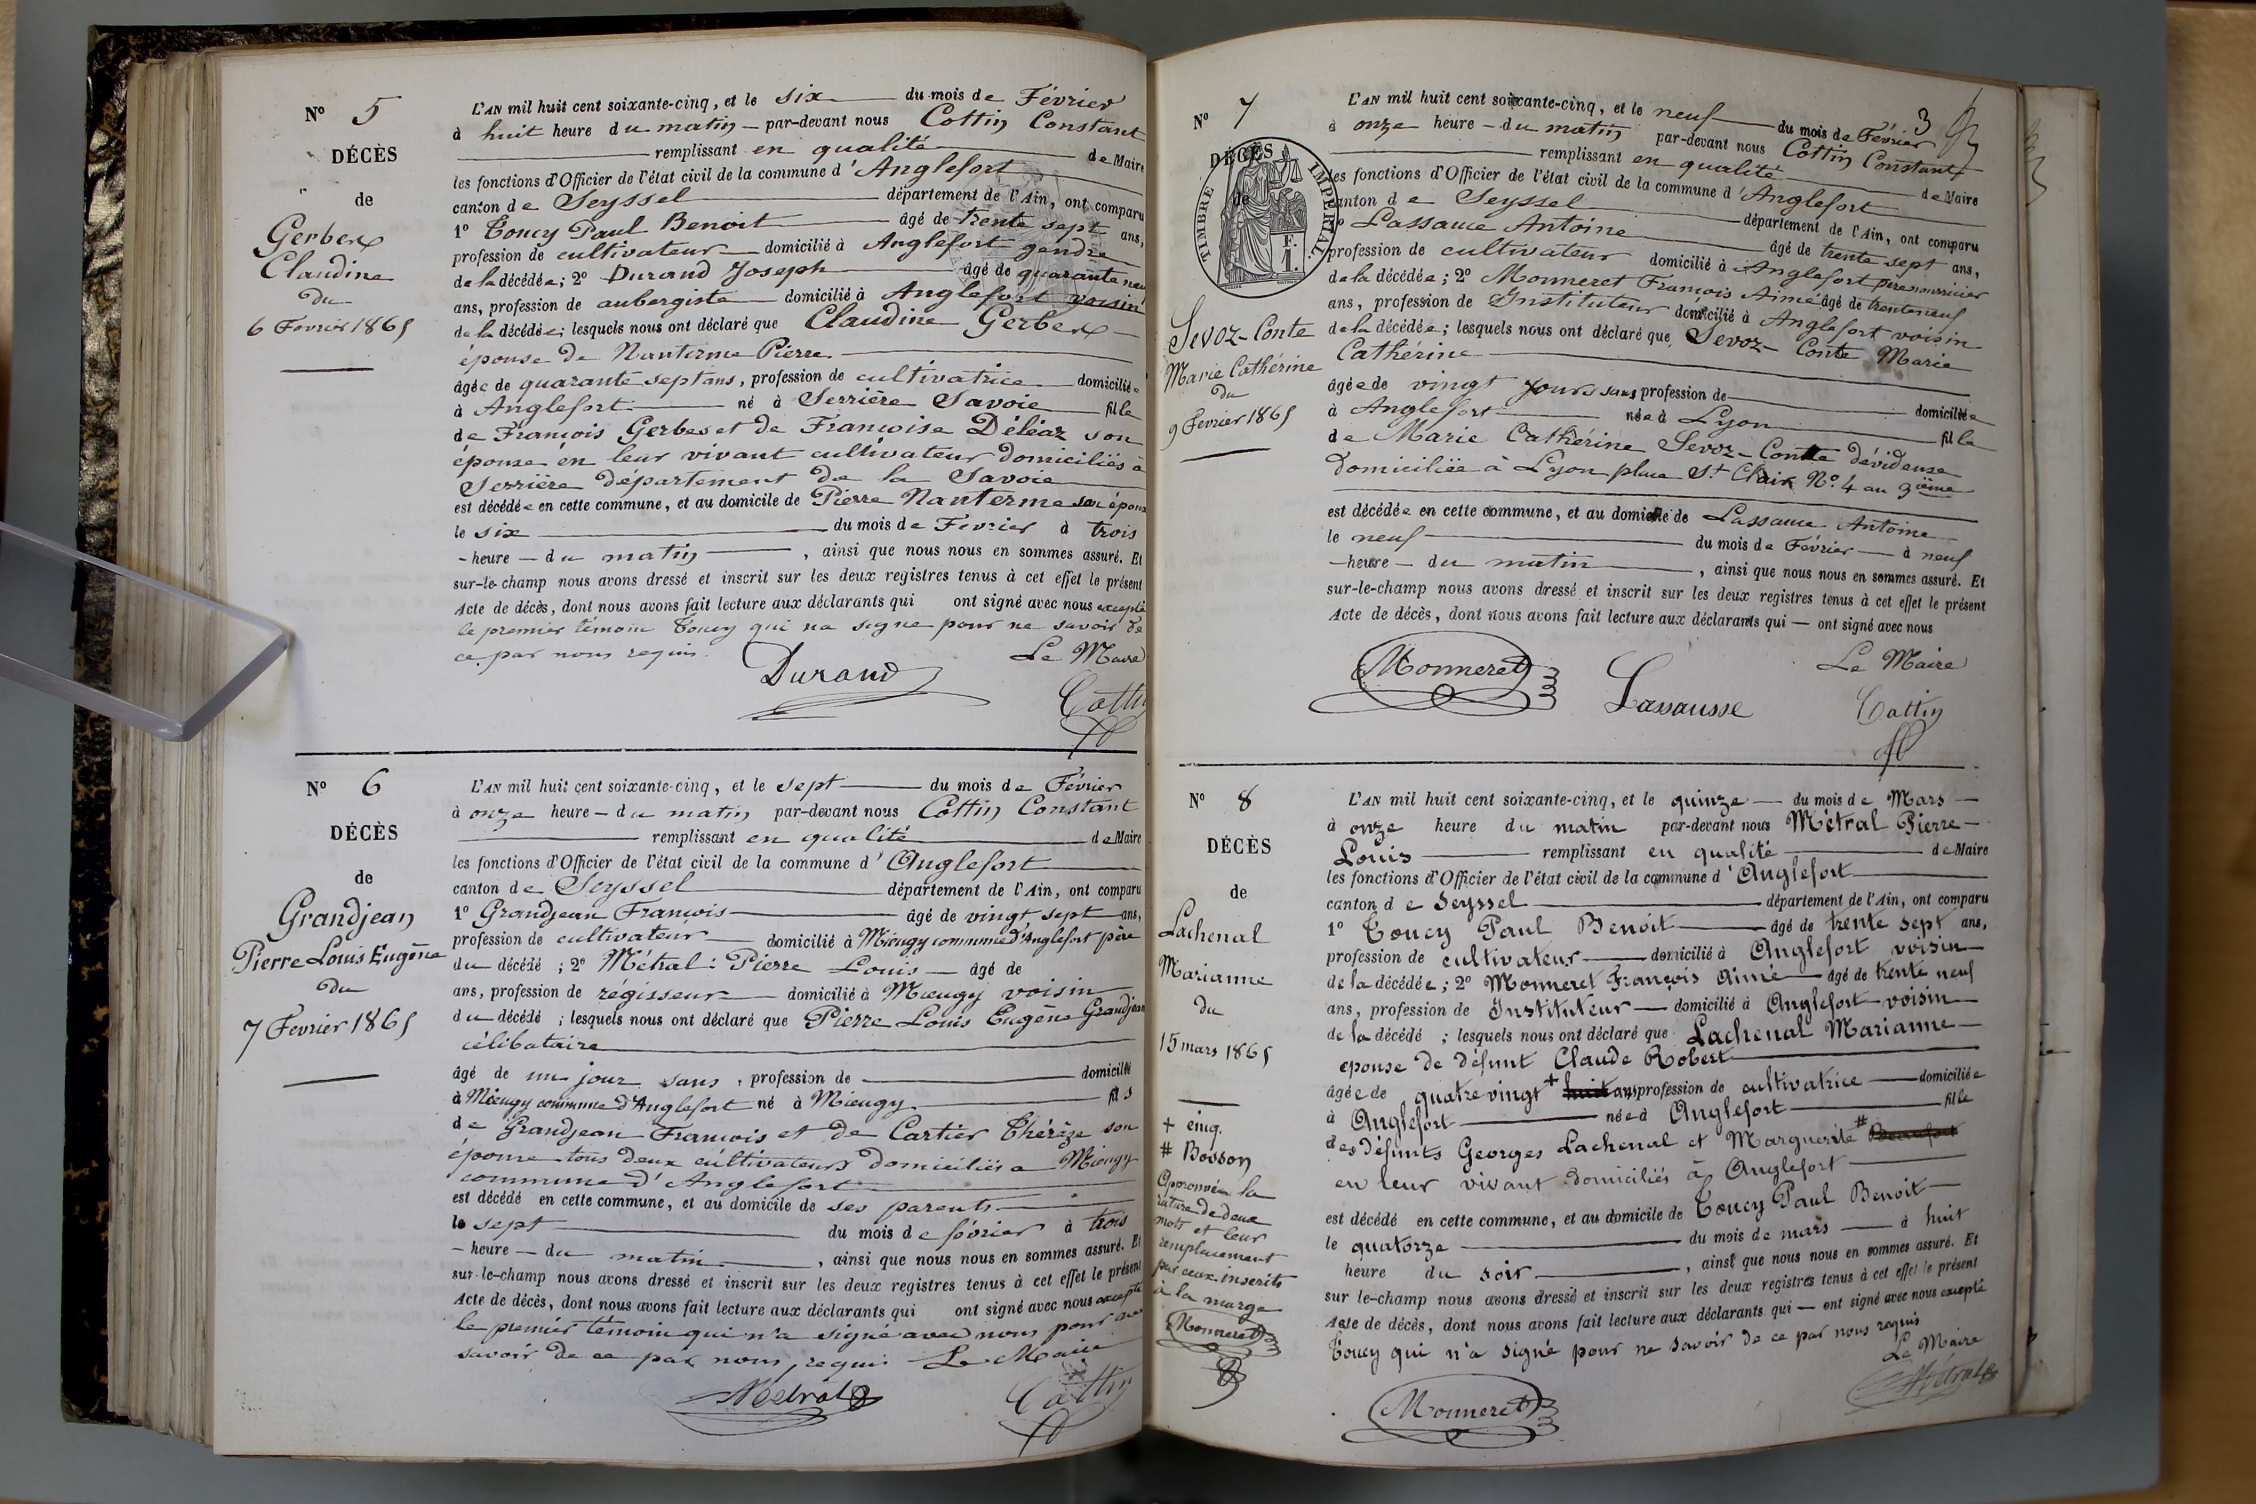 N° 5
DÉCÈS
de
Gerbex
Claudine
du
6 Fevrier 1865
L'AN mil huit cent soixante-cinq, et le six du mois de Février
à huit heure du matin par-devant nous Cottin Constant
remplissant en qualité de Maire
les fonctions d'Officier de l'état civil de la commune d'Anglefort
canton de Seyssel département de l'Ain, ont comparu
1° Toucy Paul Benoit âgé de trente sept ans,
profession de cultivateur domicilié à Anglefort gendre
de la décédée; 2° Durand Joseph âgé de quarante neuf
ans, profession de aubergiste domicilié à Anglefort voisin
de la décédée; lesquels nous ont déclaré que Claudine Gerbex
épouse de Nanterme Pierre
âgée de quarante sept ans, profession de cultivatrice domiciliée
à Anglefort né à Serrière Savoie fille
de François Gerbex et de Françoise Déléaz son
épouse en leur vivant cultivateur domiciliés à
Serrière département de la Savoie
est décédée en cette commune, et au domicile de Pierre Nanterme son époux
le six du mois de Fevrier à trois
heure du matin, ainsi que nous nous en sommes assuré. Et
sur-le-champ nous avons dressé et inscrit sur les deux registres tenus à cet effet le présent
Acte de décès, dont nous avons fait lecture aux déclarants qui ont signé avec nous excepté
le premier témoin Toucy qui na signé pour ne savoir de
ce par nous requis.
Le Maire
Durand
Cottin
N° 6
DÉCÈS
de
Grandjean
Pierre Louis Eugène
du
7 Fevrier 1865
L'AN mil huit cent soixante-cinq, et le sept du mois de Février
à onze heure du matin par-devant nous Cottin Constant
remplissant en qualité de Maire
les fonctions d'Officier de l'état civil de la commune d'Anglefort
canton de Seyssel département de l'Ain, ont comparu
1° Grandjean François âgé de vingt sept ans,
profession de cultivateur domicilié à Mieugy commune d'Anglefort père
du décédé ; 2° Métral Pierre Louis âgé de
ans, profession de régisseur domicilié à Mieugy voisin
du décédé ; lesquels nous ont déclaré que Pierre Louis Eugène Grandjean
célibataire
âgé de un jour sans, profession de domicilié
à Mieugy commune d'Anglefort né à Mieugy fils
de Grandjean François et de Cartier Thérèze son
épouse tous deux cultivateurs domiciliés a Mieugy
commune d'Anglefort
est décédé en cette commune, et au domicile de ses parents
le sept du mois de février à trois
heure du matin, ainsi que nous nous en sommes assuré. Et
sur-le-champ nous avons dressé et inscrit sur les deux registres tenus à cet effet le présent
Acte de décès, dont nous avons fait lecture aux déclarants qui ont signé avec nous excepté
le premier témoin qui n'a signé avec nous pour ne
savoir de ce par nous requis Le Maire
Métral
Cottin
3
N° 7
DÉCÈS
de
TIMBRE IMPÉRIAL
F.
1.
Sevoz-Conte
Marie Cathérine
du
9 Fevrier 1865
L'AN mil huit cent soixante-cinq, et le neuf du mois de Février
à onze heure du matin par-devant nous Cottin Constant
remplissant en qualité de Maire
les fonctions d'Officier de l'état civil de la commune d'Anglefort
canton de Seyssel département de l'Ain, ont comparu
1° Lassauce Antoine âgé de trente sept ans,
profession de cultivateur domicilié à Anglefort père nourricier
de la décédée; 2° Monneret François Aimé âgé de trente neuf
ans, profession de Instituteur domicilié à Anglefort voisin
de la décédée; lesquels nous ont déclaré que Sevoz-Conte Marie
Cathérine
âgée de vingt jours sans profession de domiciliée
à Anglefort née à Lyon fille
de Marie Cathérine Sevoz-Conte dévideuse
domiciliée à Lyon place St Clair N° 4 au 3ième
est décédée en cette commune, et au domicile de Lassauce Antoine
le neuf du mois de Février à neuf
heure du matin, ainsi que nous nous en sommes assuré. Et
sur-le-champ nous avons dressé et inscrit sur les deux registres tenus à cet effet le présent
Acte de décès, dont nous avons fait lecture aux déclarants qui ont signé avec nous
Le Maire
Monneret
Lassausse
Cottin
N° 8
DÉCÈS
de
Lachenal
Marianne
du
15 mars 1865
+ cinq.
# Bosson
Approuvée la
rature de deux
mots et leur
remplacement
par ceux inscrits
à la marge
Monneret
L'AN mil huit cent soixante-cinq, et le quinze du mois de Mars
à onze heure du matin par-devant nous Métral Pierre
Louis remplissant en qualité de Maire
les fonctions d'Officier de l'état civil de la commune d'Anglefort
canton de Seyssel département de l'Ain, ont comparu
1° Toucy Paul Benoit âgé de trente sept ans,
profession de cultivateur domicilié à Anglefort voisin
de la décédée; 2° Monneret François Aimé âgé de trente neuf
ans, profession de Instituteur domicilié à Anglefort voisin
de la décédé ; lesquels nous ont déclaré que Lachenal Marianne
epouse de défunt Claude Robert
âgée de quatre vingt + huit ans profession de cultivatrice domiciliée
à Anglefort née à Anglefort fille
des défunts Georges Lachenal et Marguerite #
en leur vivant domiciliés à Anglefort
est décédé en cette commune, et au domicile de Toucy Paul Benoit
le quatorze du mois de mars à huit
heure du soir, ainsi que nous nous en sommes assuré. Et
sur le-champ nous avons dressé et inscrit sur les deux registres tenus à cet effet le présent
Acte de décès, dont nous avons fait lecture aux déclarants qui ont signé avec nous excepté
Toucy qui n'a signé pour ne savoir de ce par nous requis
Le Maire
Monneret
Métral